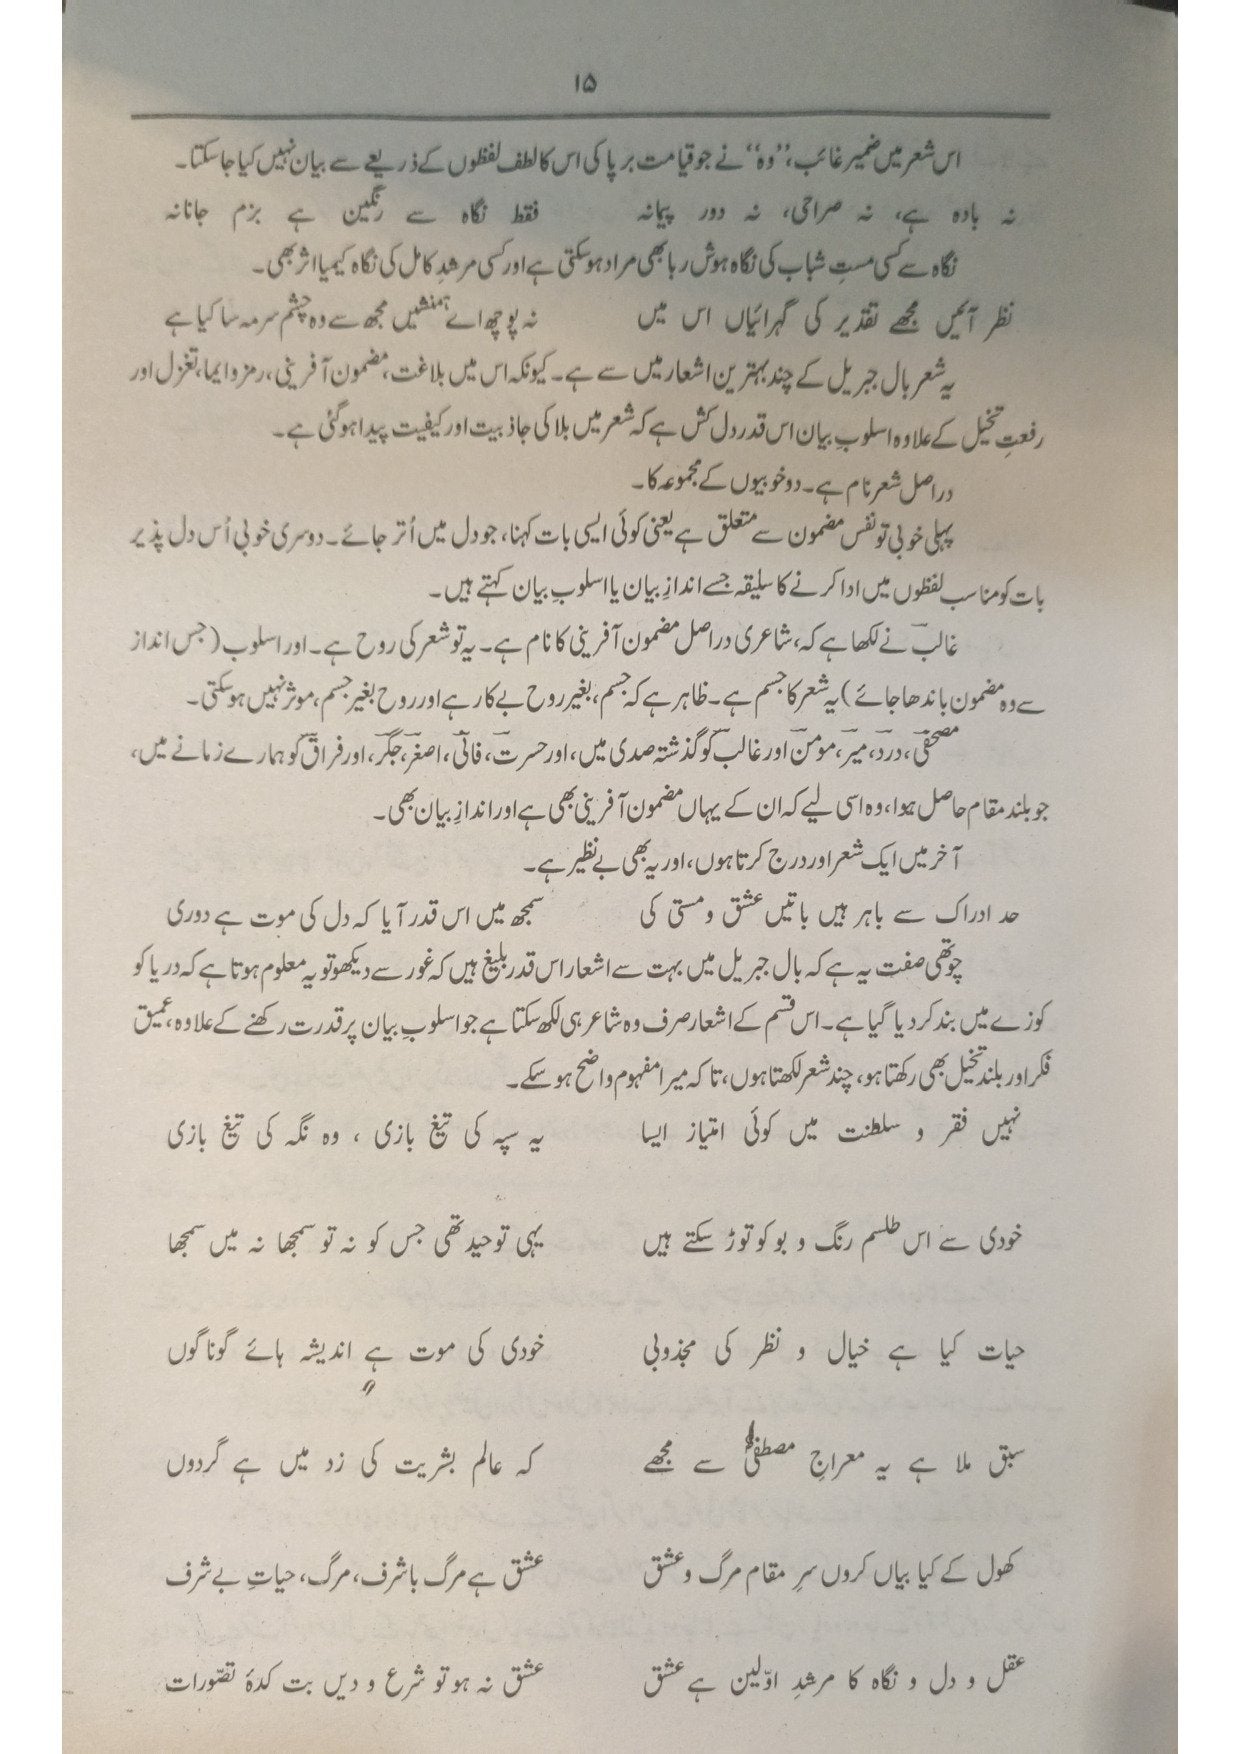 ۱۵
اس شعر میں ضمیر غائب، ”وہ“ نے جو قیامت برپا کی اس کا لطف لفظوں کے ذریعے سے بیان نہیں کیا جا سکتا۔
نہ بادہ ہے، نہ صراحی، نہ دور پیمانہ فقط نگاہ سے رنگین ہے بزم جانانہ
نگاہ سے کسی مستِ شباب کی نگاہ ہوش ربا بھی مراد ہو سکتی ہے اور کسی مرشدِ کامل کی نگاہ کیمیا اثر بھی۔
نظر آئیں مجھے تقدیر کی گہرائیاں اس میں نہ پوچھ اے ہمنشیں مجھ سے وہ چشم سرمہ سا کیا ہے
یہ شعر بال جبریل کے چند بہترین اشعار میں سے ہے۔ کیونکہ اس میں بلاغت، مضمون آفرینی، رمز و ایما، تغزل اور
رفعتِ تخیل کے علاوہ اسلوبِ بیان اس قدر دل کش ہے کہ شعر میں بلا کی جاذبیت اور کیفیت پیدا ہو گئی ہے۔
دراصل شعر نام ہے۔ دو خوبیوں کے مجموعہ کا۔
پہلی خوبی تو نفس مضمون سے متعلق ہے یعنی کوئی ایسی بات کہنا، جو دل میں اُتر جائے۔ دوسری خوبی اُس دل پذیر
بات کو مناسب لفظوں میں ادا کرنے کا سلیقہ جسے اندازِ بیان یا اسلوبِ بیان کہتے ہیں۔
غالبؔ نے لکھا ہے کہ، شاعری دراصل مضمون آفرینی کا نام ہے۔ یہ تو شعر کی روح ہے۔ اور اسلوب (جس انداز
سے وہ مضمون باندھا جائے) یہ شعر کا جسم ہے۔ ظاہر ہے کہ جسم، بغیر روح بے کار ہے اور روح بغیر جسم، موثر نہیں ہو سکتی۔
مصحفیؔ، دردؔ، میرؔ، مومنؔ اور غالبؔ کو گذشتہ صدی میں، اور حسرتؔ، فانیؔ، اصغرؔ، جگرؔ، اور فراقؔ کو ہمارے زمانے میں،
جو بلند مقام حاصل ہوا، وہ اسی لیے کہ ان کے یہاں مضمون آفرینی بھی ہے اور اندازِ بیان بھی۔
آخر میں ایک شعر اور درج کرتا ہوں، اور یہ بھی بے نظیر ہے۔
حد ادراک سے باہر ہیں باتیں عشق و مستی کی سمجھ میں اس قدر آیا کہ دل کی موت ہے دوری
چوتھی صفت یہ ہے کہ بال جبریل میں بہت سے اشعار اس قدر بلیغ ہیں کہ غور سے دیکھو تو یہ معلوم ہوتا ہے کہ دریا کو
کوزے میں بند کر دیا گیا ہے۔ اس قسم کے اشعار صرف وہ شاعر ہی لکھ سکتا ہے جو اسلوبِ بیان پر قدرت رکھنے کے علاوہ، عمیق
فکر اور بلند تخیل بھی رکھتا ہو، چند شعر لکھتا ہوں، تاکہ میرا مفہوم واضح ہو سکے۔
نہیں فقر و سلطنت میں کوئی امتیاز ایسا یہ سپہ کی تیغ بازی ، وہ نگہ کی تیغ بازی
خودی سے اس طلسم رنگ و بو کو توڑ سکتے ہیں یہی توحید تھی جس کو نہ تو سمجھا نہ میں سمجھا
حیات کیا ہے خیال و نظر کی مجذوبی خودی کی موت ہے اندیشہ ہائے گوناگوں
سبق ملا ہے یہ معراجِ مصطفیٰؐ سے مجھے کہ عالم بشریت کی زد میں ہے گردوں
کھول کے کیا بیاں کروں سرِ مقام مرگ و عشق عشق ہے مرگ باشرف، مرگ، حیاتِ بے شرف
عقل و دل و نگاہ کا مرشدِ اوّلین ہے عشق عشق نہ ہو تو شرع و دیں بت کدۂ تصّورات